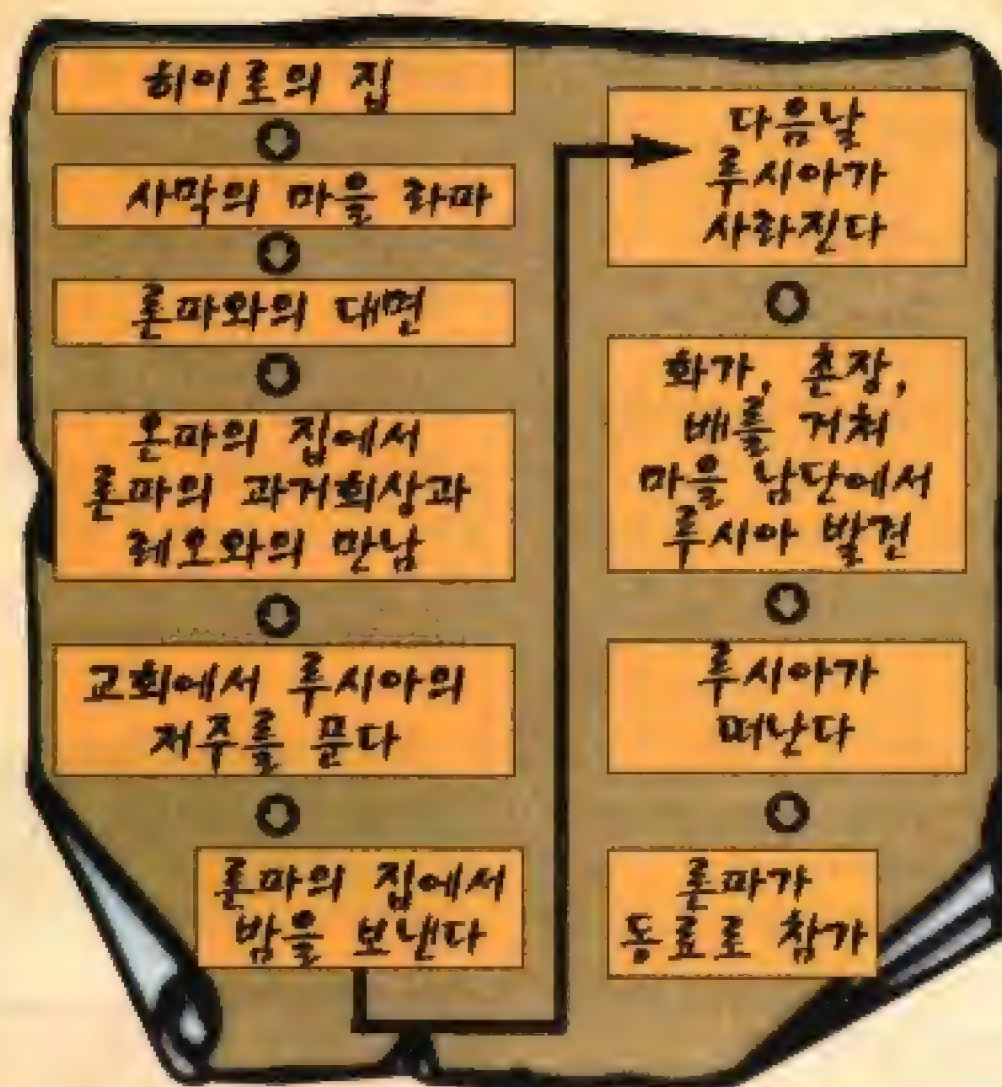 히이로의 집
사막의 마을 라파
론파와의 대면
온파의 집에서
론파의 과거회상과
레오와의 만남
교회에서 루시아의
저주를 푼다
론파의 집에서
밤을 보낸다
다음날
루시아가
사라진다
화가, 촌장,
배를 거쳐
마을 남단에서
루시아 발견
루시아가
떠난다
론파가
동료로 참가